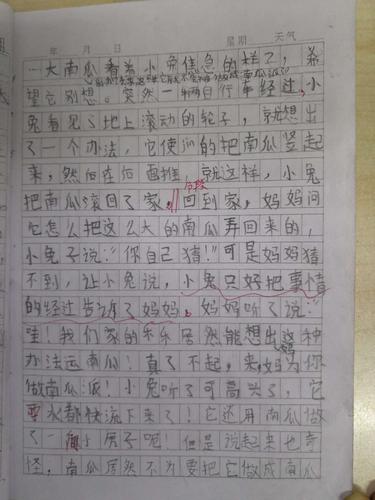 年 月 日 星期 天气
一大南瓜看着小兔焦急的样子,希
望它别想。突然一辆自行车经过,小
兔看见了地上滚动的轮子,就想出
了一个办法,它使劲的把南瓜竖起
来,然后在后面推,就这样,小兔
分段
把南瓜滚回了家。回到家,妈妈问
它怎么把这么大的南瓜弄回来的,
小兔子说:“你自己猜!”可是妈妈猜
不到,让小兔说,小兔只好把事情
的经过告诉了妈妈。妈妈听了说:“
哇!我们家的乖乖居然能想出这种
办法运南瓜!真了不起,来,妈妈为你
做南瓜派!小兔听了可高兴了,它
口水都快流下来了!它还用南瓜做
了一间小房子呢!但是说起来也奇
怪,南瓜居然不介要把它做成南瓜